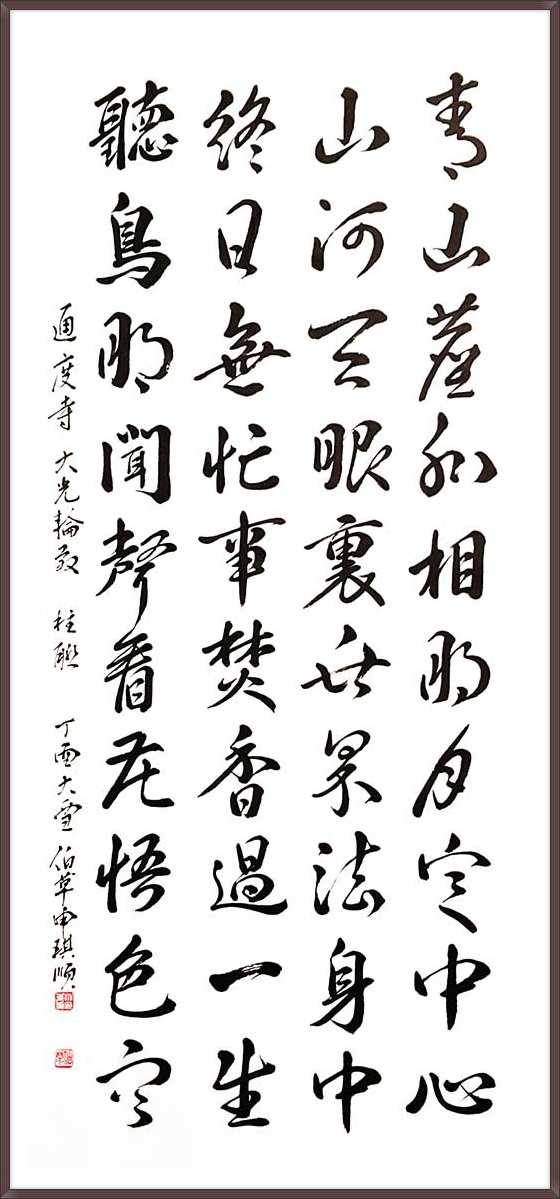 青山塵外相明月定中心
山河天眼裏世界法身中
終日無忙事焚香過一生
聽鳥明聞聲看花悟色空
通度寺 大光輪殿 柱聯 丁酉大雪 伯草申琪順